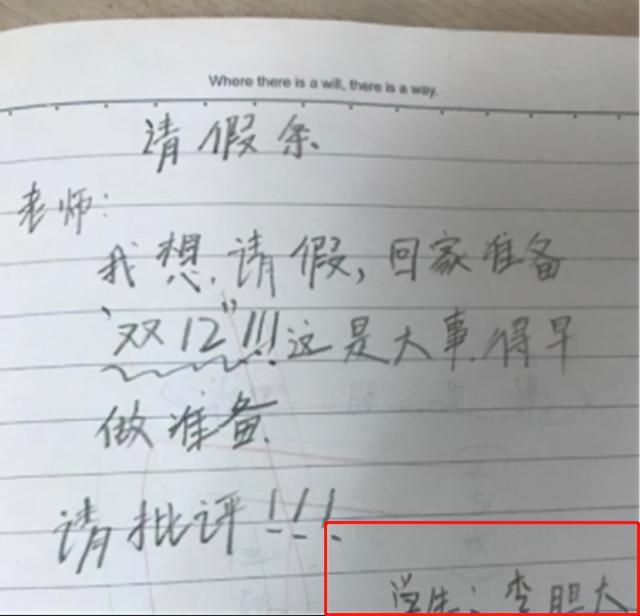 Where there is a will, there is a way.
请假条
老师:
我想请假,回家准备
"双12"!!!这是大事.得早
做准备.
请批评!!!
学生:李胆大